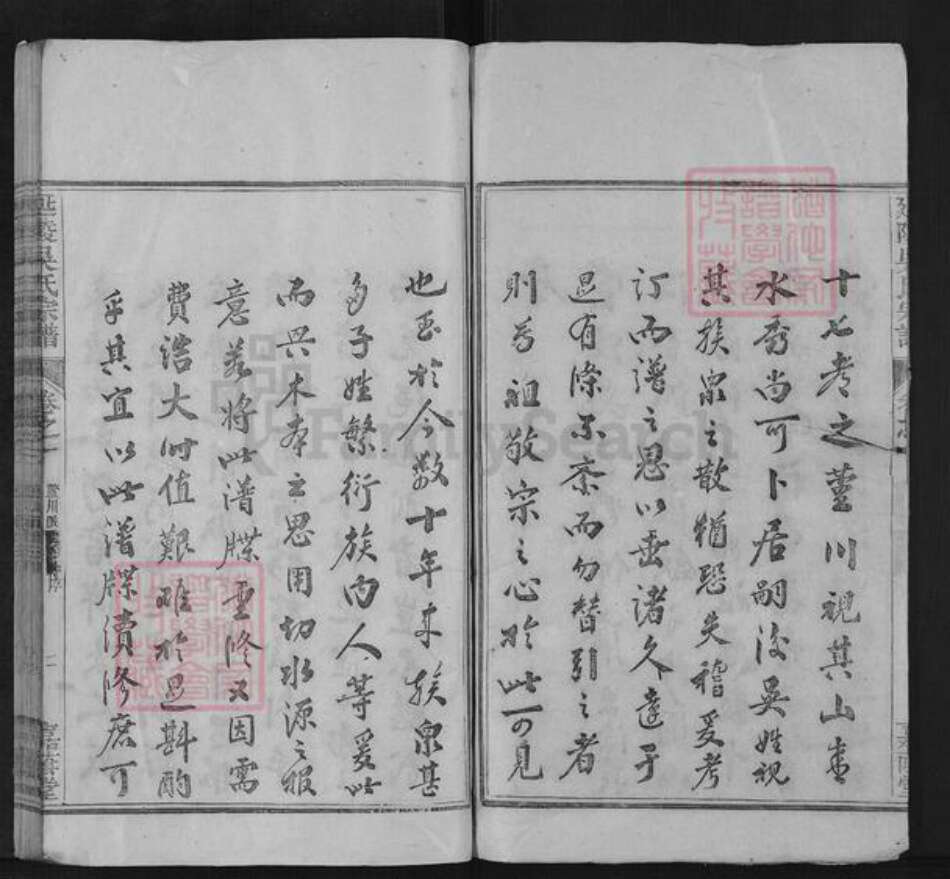 十七考之薹川視其山青
水秀尚可卜居嗣後吳姓視
其族衆之散猶恐失稽爰考
訂而譜之思以垂諸久遠于
是有條不紊而勿替引之者
則尊祖敬宗之心於此可見
也至於今數十年来族衆甚
多子姓繁衍族内人等爰以
而興木本之思用切水源之報
意欲將此譜牒重修又因需
費浩大时值艱难於是斟酌
乎其宜以此譜牒續修庶可
延陵吳氏宗譜
卷之一
二
FamilySearch